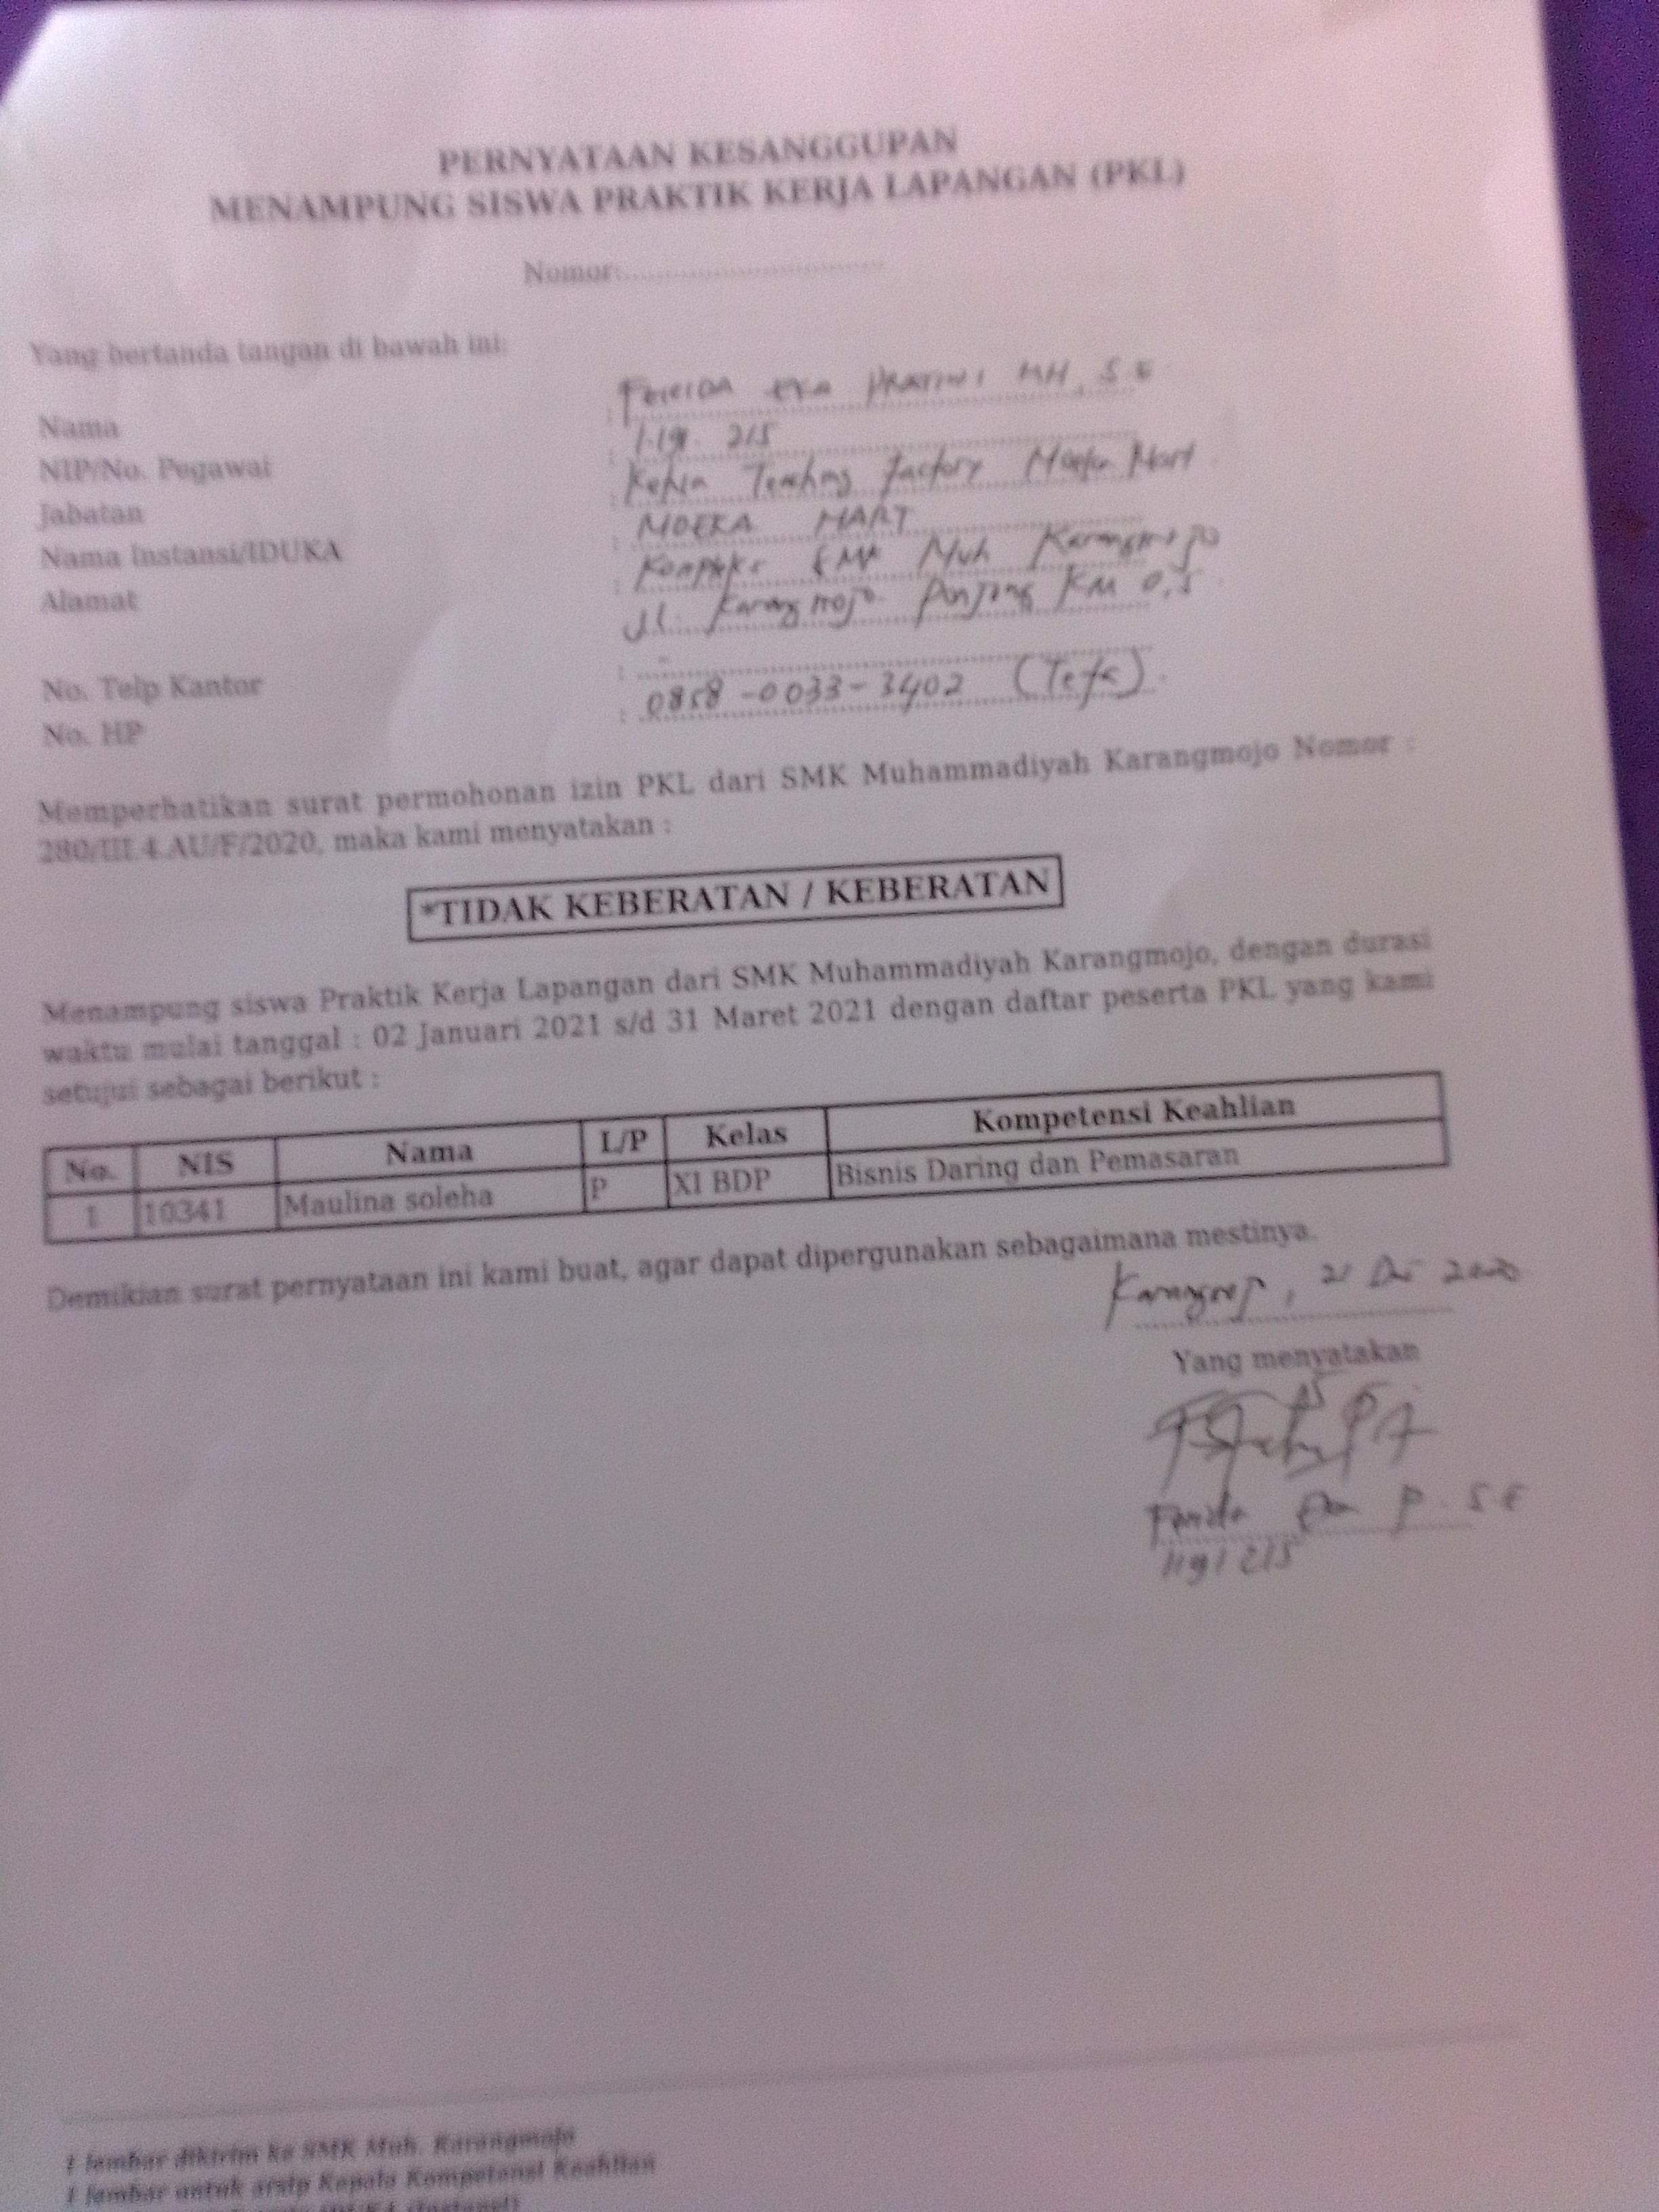 PERNYATAAN KESANGGUPAN
MENAMPUNG SISWA PRAKTIK KERJA LAPANGAN (PKL)
Nomor:..............................
Yang bertanda tangan di bawah ini:
Nama : EKA PRATIWI MH, SE
NIP/No. Pegawai : 215
Jabatan : Teaching Factory Mart
Nama Instansi/IDUKA : MOEKA MART
Alamat : Kompleks SMK Muh Karangmojo
Jl. Karangmojo Ponjong KM 0,5
No. Telp Kantor : -
No. HP : 0858-0033-3402 (Tefa)
Memperhatikan surat permohonan izin PKL dari SMK Muhammadiyah Karangmojo Nomor :
280/III.4.AU/F/2020, maka kami menyatakan :
*TIDAK KEBERATAN / KEBERATAN
Menampung siswa Praktik Kerja Lapangan dari SMK Muhammadiyah Karangmojo, dengan durasi
waktu mulai tanggal : 02 Januari 2021 s/d 31 Maret 2021 dengan daftar peserta PKL yang kami
setujui sebagai berikut :
No. NIS Nama L/P Kelas Kompetensi Keahlian
1 10341 Maulina soleha P XI BDP Bisnis Daring dan Pemasaran
Demikian surat pernyataan ini kami buat, agar dapat dipergunakan sebagaimana mestinya.
Karangmojo, 21 2020
Yang menyatakan
Farida Eka P. SE
1191215
1 lembar dikirim ke SMK Muh. Karangmojo
1 lembar untuk arsip Kepala Kompetensi Keahlian